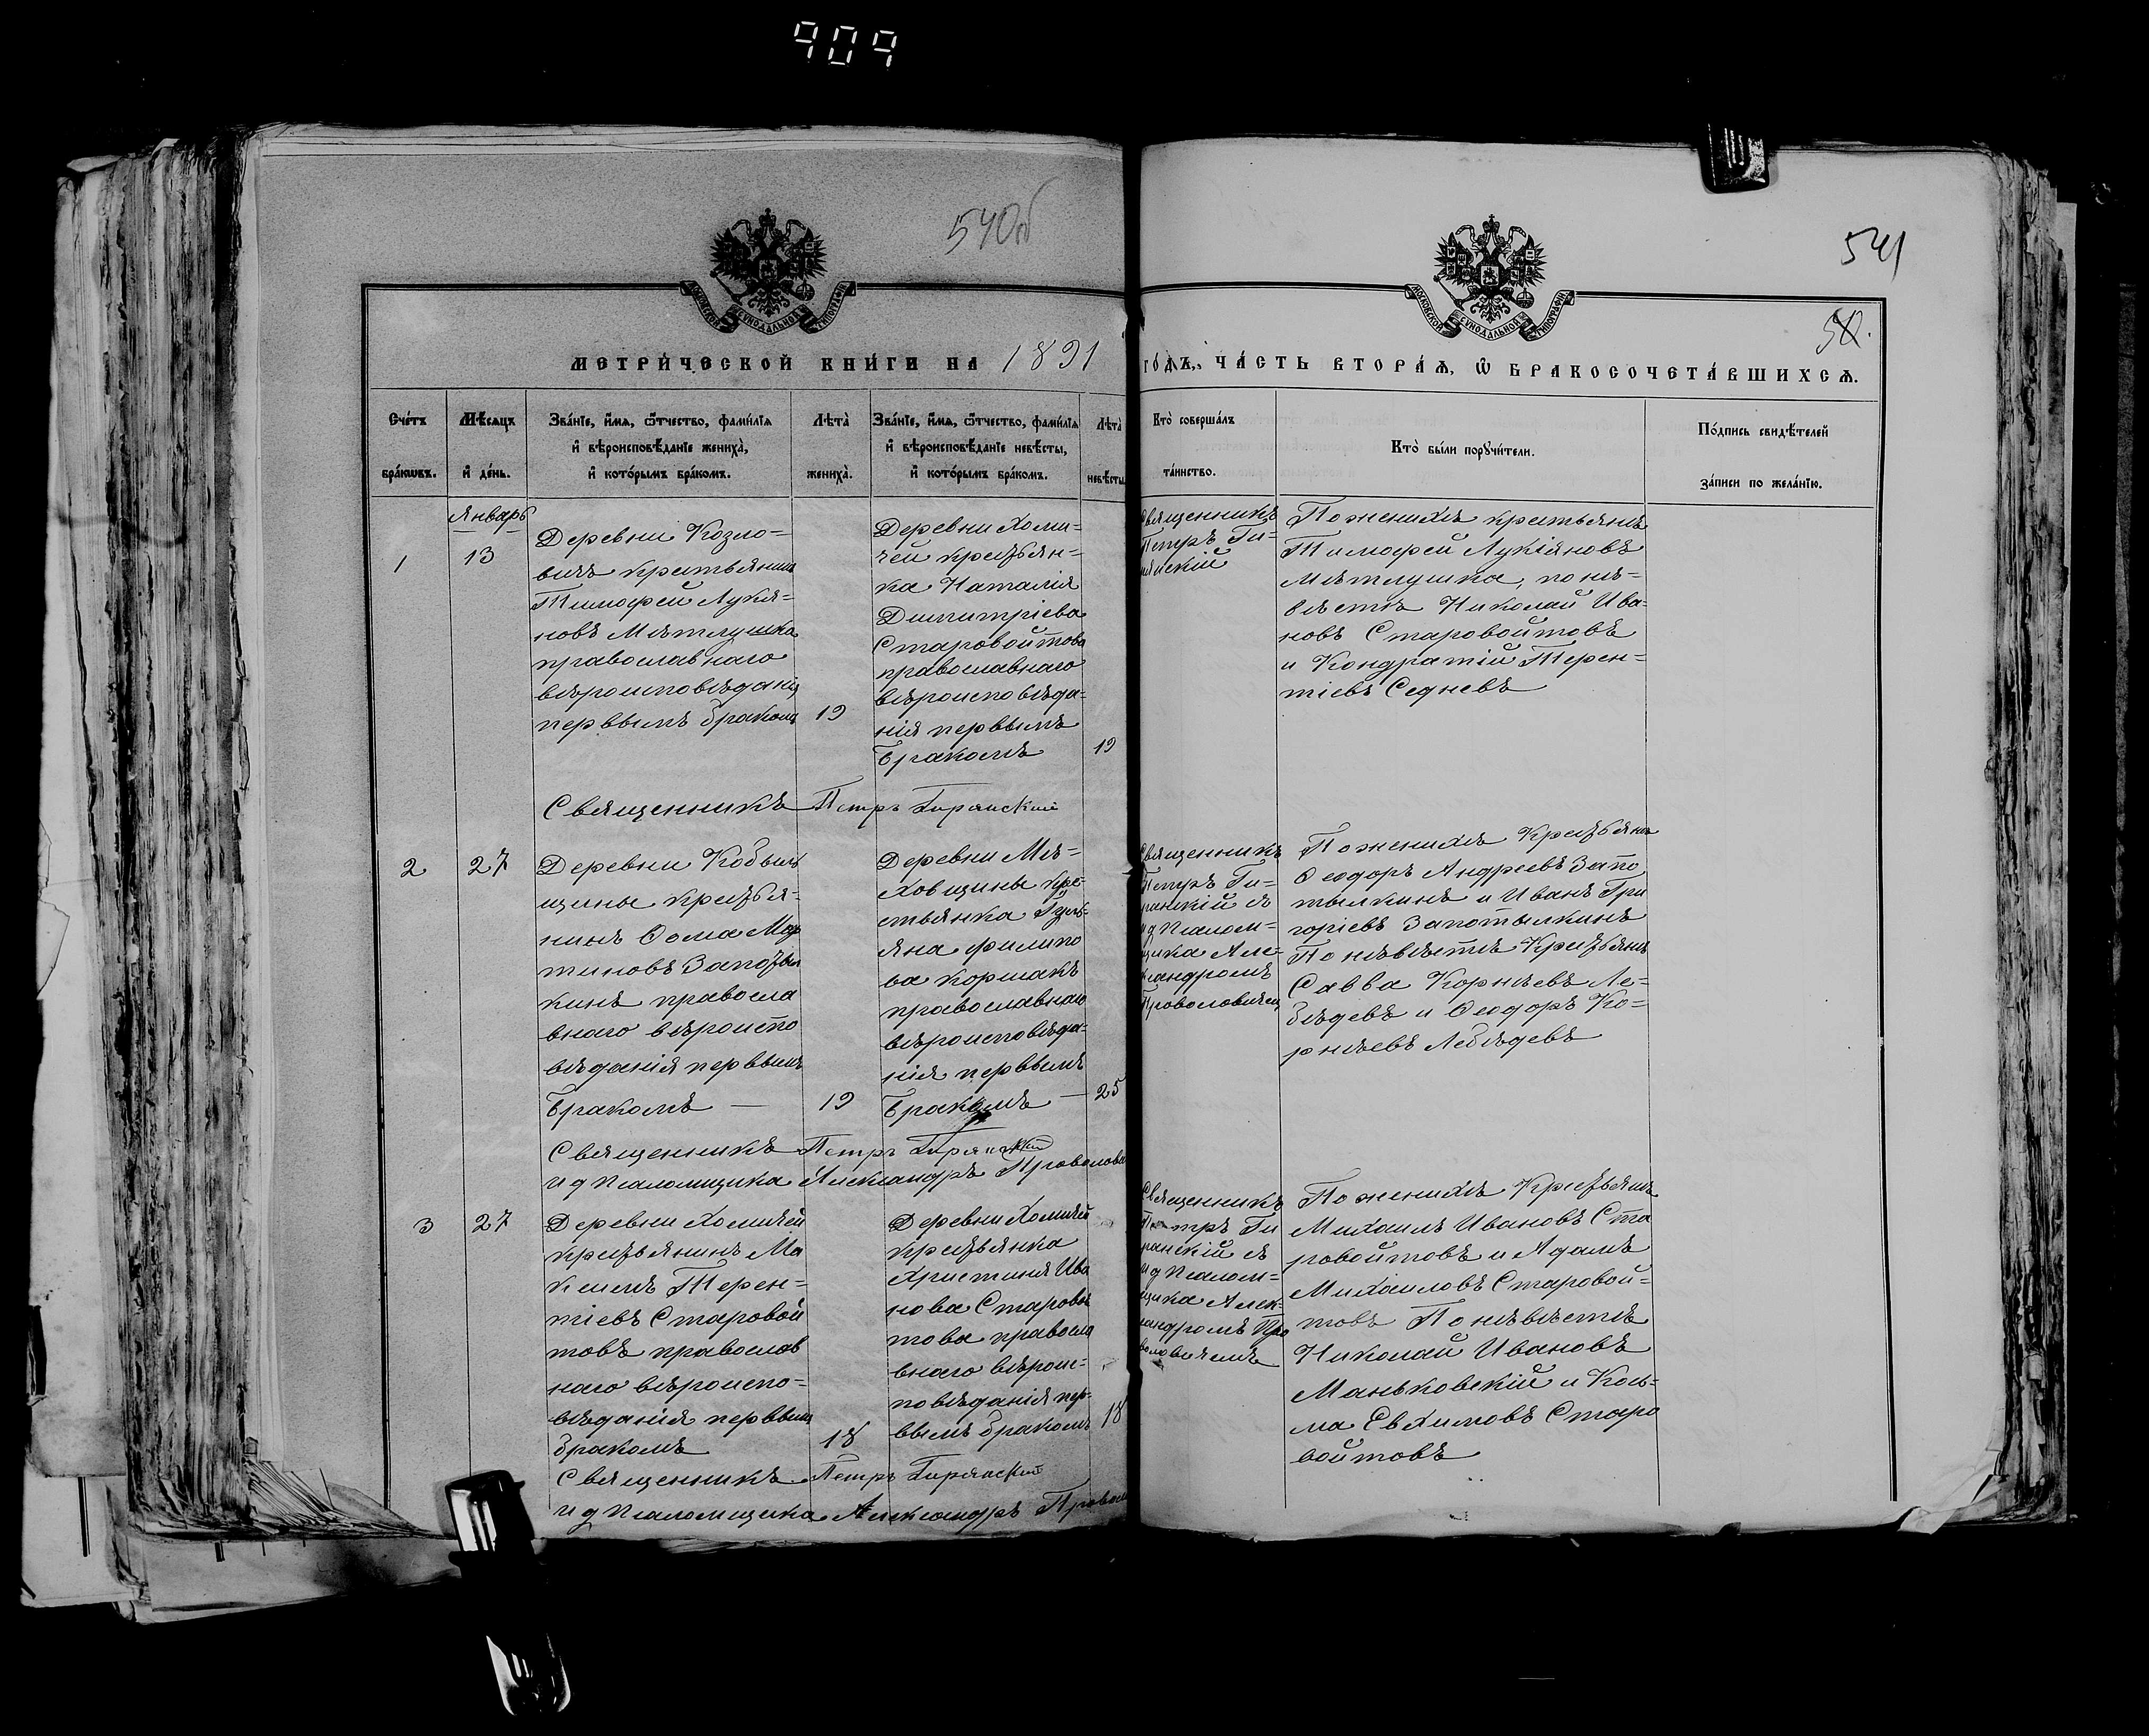 909
540об
541
50.
МОСКОВСКОЙ СУНОДАЛЬНОЙ ТИПОГРАФІИ
МОСКОВСКОЙ СУНОДАЛЬНОЙ ТИПОГРАФІИ
МЕТРИ́ЧЕСКОЙ КНИ́ГИ НА 1891
ГО́ДЪ, ЧА́СТЬ ВТОРА́Ѧ, Ѡ҆ БРАКОСОЧЕТА́ВШИХСѦ.
Сче́тъ
бра́кѡвъ.
Мѣ́сяцъ
и҆ де́нь.
Зва́нїе, и҆́мѧ, ѻ҆́тчество, фами́лїѧ
и҆ вѣроисповѣ́данїе жениха̀,
и҆ кото́рымъ бра́комъ.
Лѣта̀
жениха̀.
Зва́нїе, и҆́мѧ, ѻ҆́тчество, фами́лїѧ
и҆ вѣроисповѣ́данїе невѣ́сты,
и҆ кото́рымъ бра́комъ.
Лѣта̀
невѣ́сты
Кто̀ соверша́лъ
та́инство.
Кто̀ бы́ли порꙋчи́тели.
По́дпись свидѣ́телей
за́писи по жела́нїю.
Январь
1
13
Деревни Козло-
вичъ крестьянинъ
Тимофей Лукія-
новъ Мятлушка
православнаго
вѣроисповѣданія
первымъ бракомъ
19
Деревни Хоми-
чей крестьян-
ка Наталія
Димитріева
Старовойтова
православнаго
вѣроисповѣда-
нія первымъ
бракомъ
19
Священникъ
Петръ Ги-
рянскій
По женихѣ крестьянъ
Тимофей Лукіяновъ
Мятлушка, по не-
вѣстѣ Николай Ива-
новъ Старовойтовъ
и Кондратій Терен-
тіевъ Седневъ
Священникъ Петръ Гирянскій
2
27
Деревни Кобыль
щины крестья-
нинъ Ѳома Мар
тиновъ Запотыл
кинъ правосла
внаго вѣроиспо
вѣданія первымъ
бракомъ —
19
Деревни Мя-
ховщины кре-
стьянка Улья-
яна Филипо
ва Коршакъ
православнаго
вѣроисповѣда-
нія первымъ
бракомъ —
25
Священникъ
Петръ Ги-
рянскій съ
и д псалом-
щика Але-
ксандромъ
Проволовичем
По женихѣ Крестьянъ
Ѳеодоръ Андреевъ Запо
тылкинъ и Иванъ Гри
горіевъ Запотылкинъ
По невѣстѣ Крестьянъ
Савва Корнѣевъ Ле-
бѣдевъ и Ѳеодоръ Ко-
рнѣевъ Лебѣдевъ
Священникъ Петръ Гирянскій
и д псаломщика Александръ Проволови
3
27
Деревни Хомичей
крестьянинъ Ма
ксимъ Терен-
тіевъ Старовой
товъ православ
наго вѣроиспо-
вѣданія первымъ
бракомъ
18
Деревни Хомичей
крестьянка
Христина Ива
нова Старовой
това правосла
внаго вѣроис-
повѣданія пер-
вымъ бракомъ
18
Священникъ
Петръ Ги
рянскій съ
и д псалом-
щика Алек-
сандромъ Про
воловичемъ
По женихѣ Крестьянъ
Михаилъ Ивановъ Ста
ровойтовъ и Адамъ
Михаиловъ Старовой-
товъ По невѣстѣ
Николай Ивановъ
Маньковскій и Кось-
ма Евхимовъ Старо
войтовъ
Священникъ Петръ Гирянскій
и д псаломщика Александръ Провол